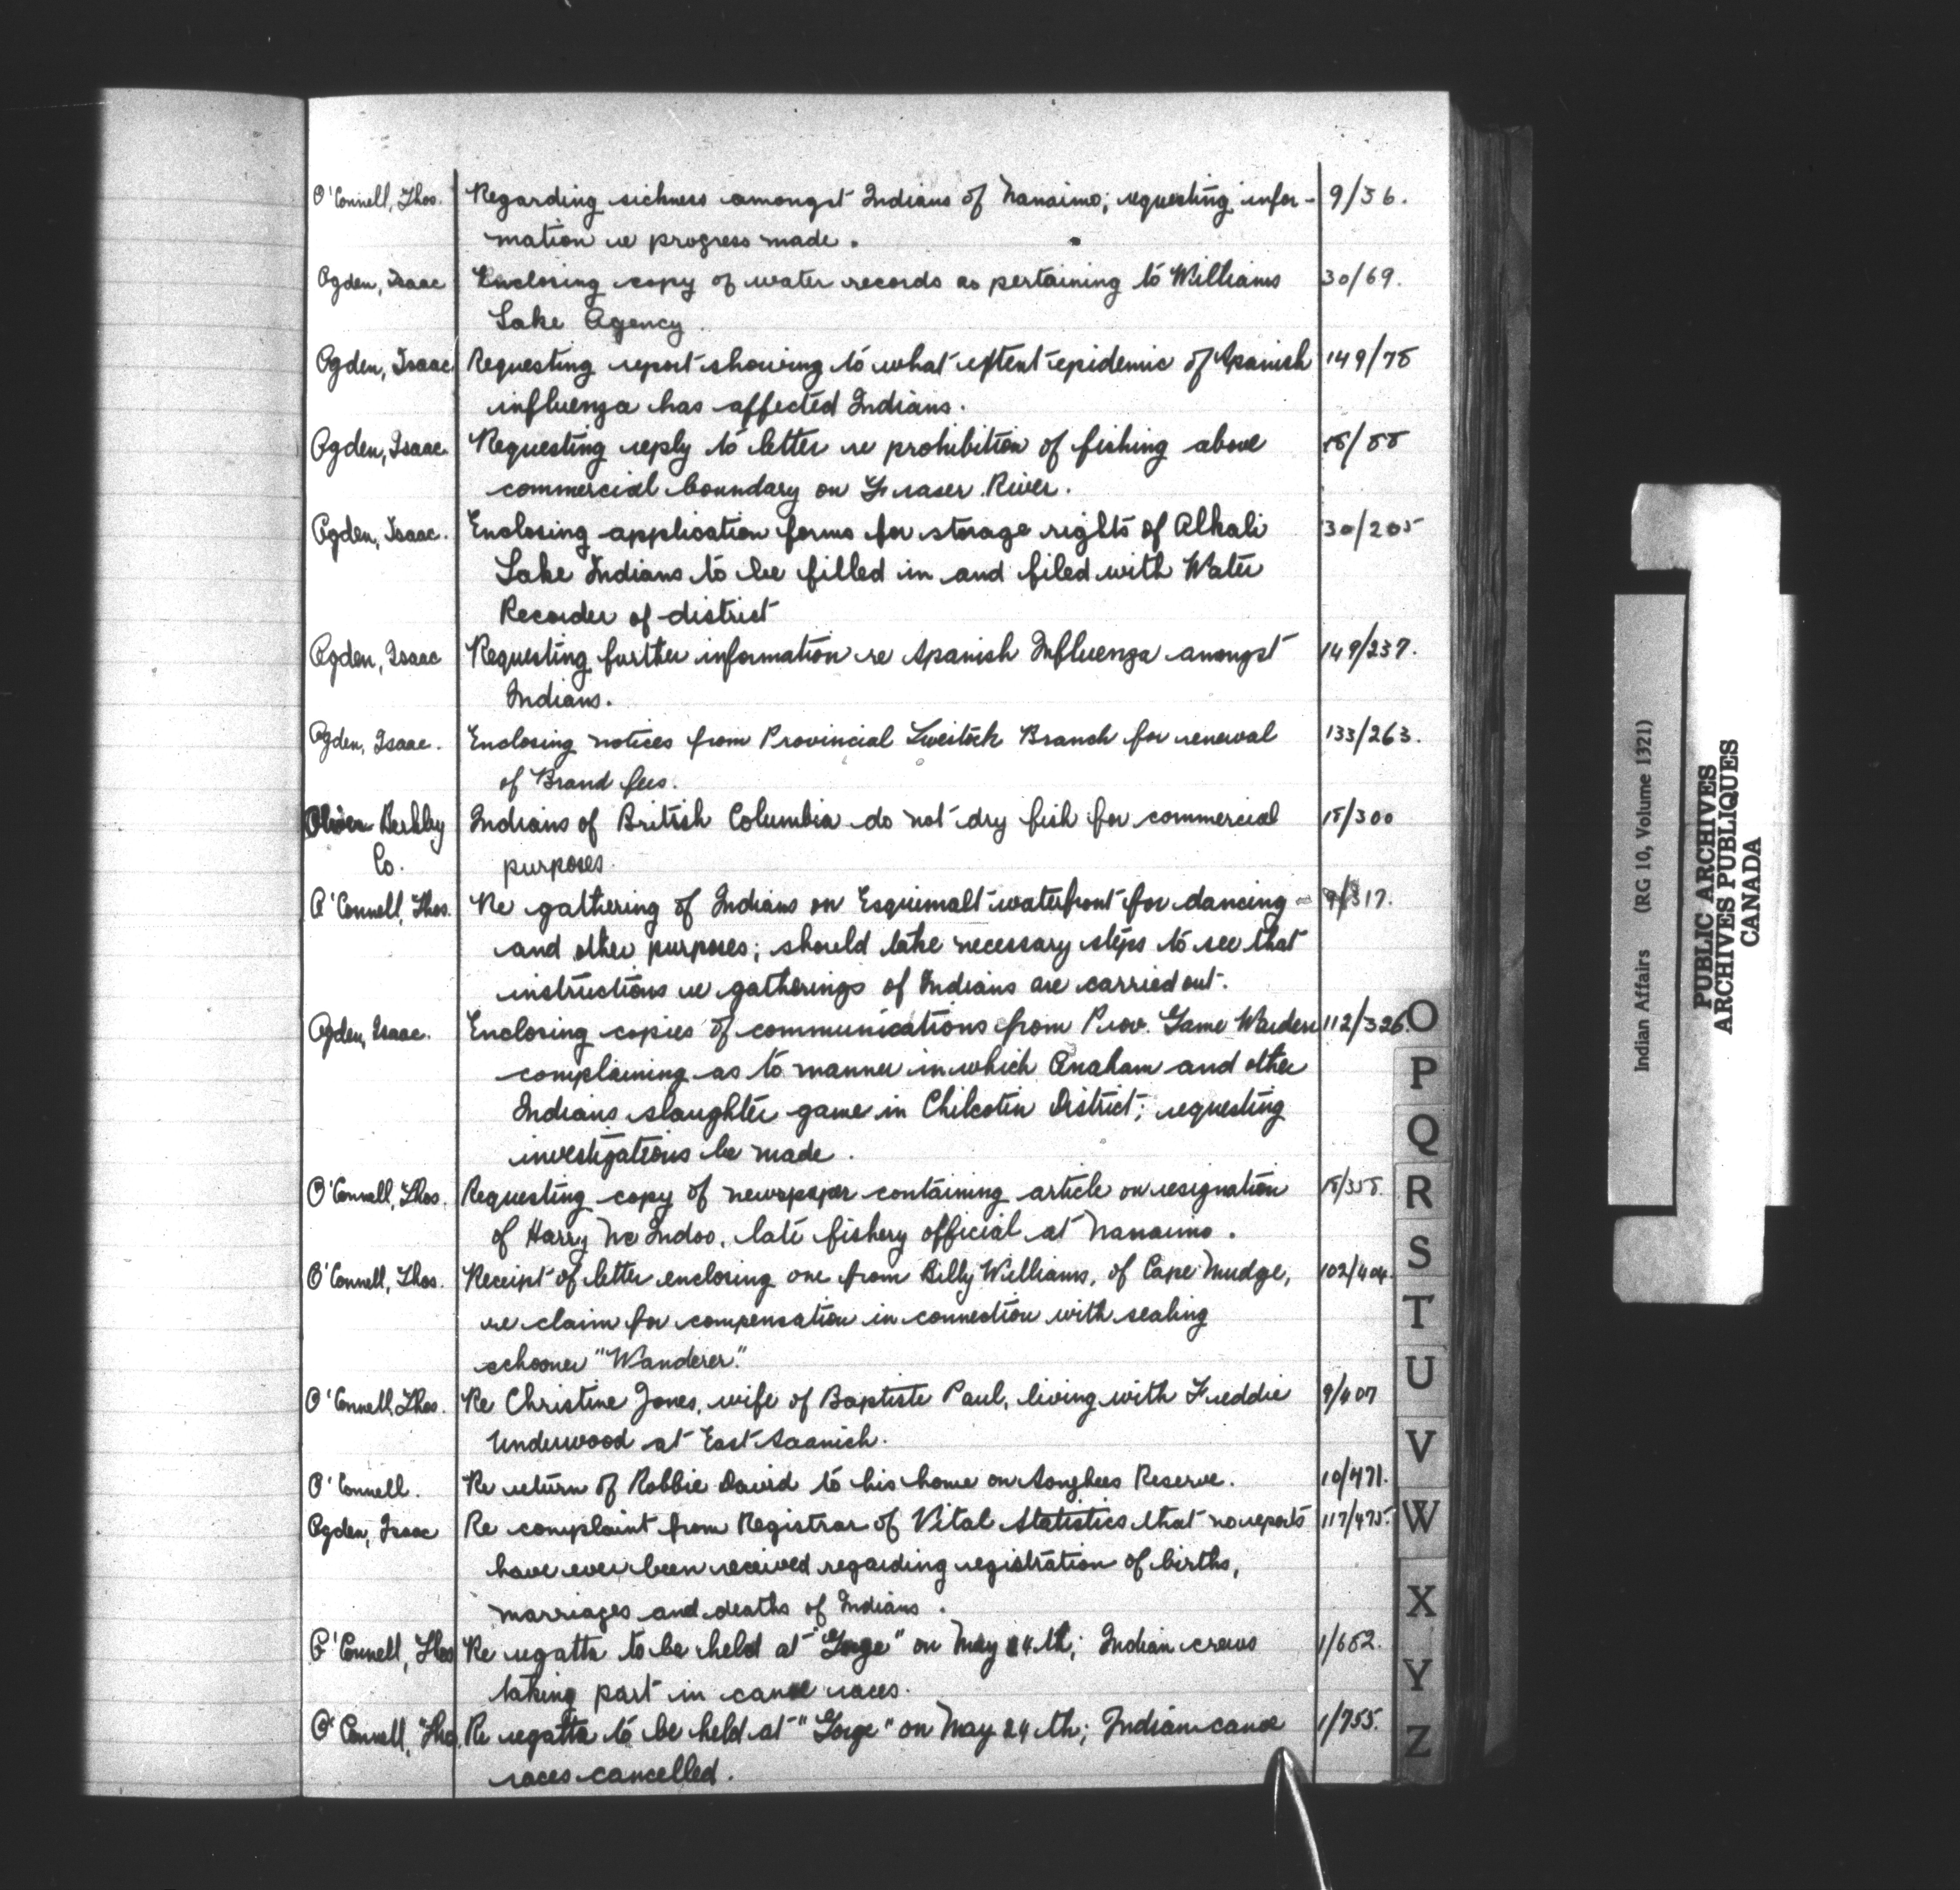 O'Connell, Thos. Regarding sickness amongst Indians of Nanaimo; requesting infor- 9/36.
mation re progress made.
Ogden, Isaac Enclosing copy of water records as pertaining to Williams 30/69.
Lake Agency.
Ogden, Isaac Requesting report showing to what extent epidemic of Spanish 149/78
influenza has affected Indians.
Ogden, Isaac. Requesting reply to letter re prohibition of fishing above 18/88
commercial boundary on Fraser River.
Ogden, Isaac. Enclosing application forms for storage rights of Alkali 30/205
Lake Indians to be filled in and filed with Water
Recorder of district
Ogden, Isaac Requesting further information re Spanish Influenza amongst 149/237.
Indians.
Ogden, Isaac. Enclosing notices from Provincial Livestock Branch for renewal 133/263.
of Brand fees.
Berkley Indians of British Columbia do not dry fish for commercial 18/300
Co. purposes.
O'Connell, Thos. Re gathering of Indians on Esquimalt waterfront for dancing 9/317.
and other purposes; should take necessary steps to see that
instructions re gatherings of Indians are carried out.
Ogden, Isaac. Enclosing copies of communications from Prov. Game Warden 112/326.
complaining as to manner in which Anaham and other
Indians slaughter game in Chilcotin District; requesting
investigations be made.
O'Connell, Thos. Requesting copy of newspaper containing article on resignation 18/358.
of Harry McIndoo, late fishery official at Nanaimo.
O'Connell, Thos. Receipt of letter enclosing one from Billy Williams, of Cape Mudge, 102/404.
re claim for compensation in connection with sealing
schooner "Wanderer."
O'Connell, Thos. Re Christine Jones, wife of Baptiste Paul, living with Freddie 9/407
Underwood at East Saanich.
O'Connell. Re return of Robbie David to his home on Songhees Reserve. 10/471.
Ogden, Isaac Re complaint from Registrar of Vital Statistics that no reports 117/475.
have ever been received regarding registration of births,
marriages and deaths of Indians.
O'Connell, Thos Re regatta to be held at "Gorge" on May 24th; Indian crews 1/682.
taking part in canoe races.
O'Connell, Thos. Re regatta to be held at "Gorge" on May 24th; Indian canoe 1/755.
races cancelled.
O
P
Q
R
S
T
U
V
W
X
Y
Z
Indian Affairs (RG 10, Volume 1321)
PUBLIC ARCHIVES
ARCHIVES PUBLIQUES
CANADA